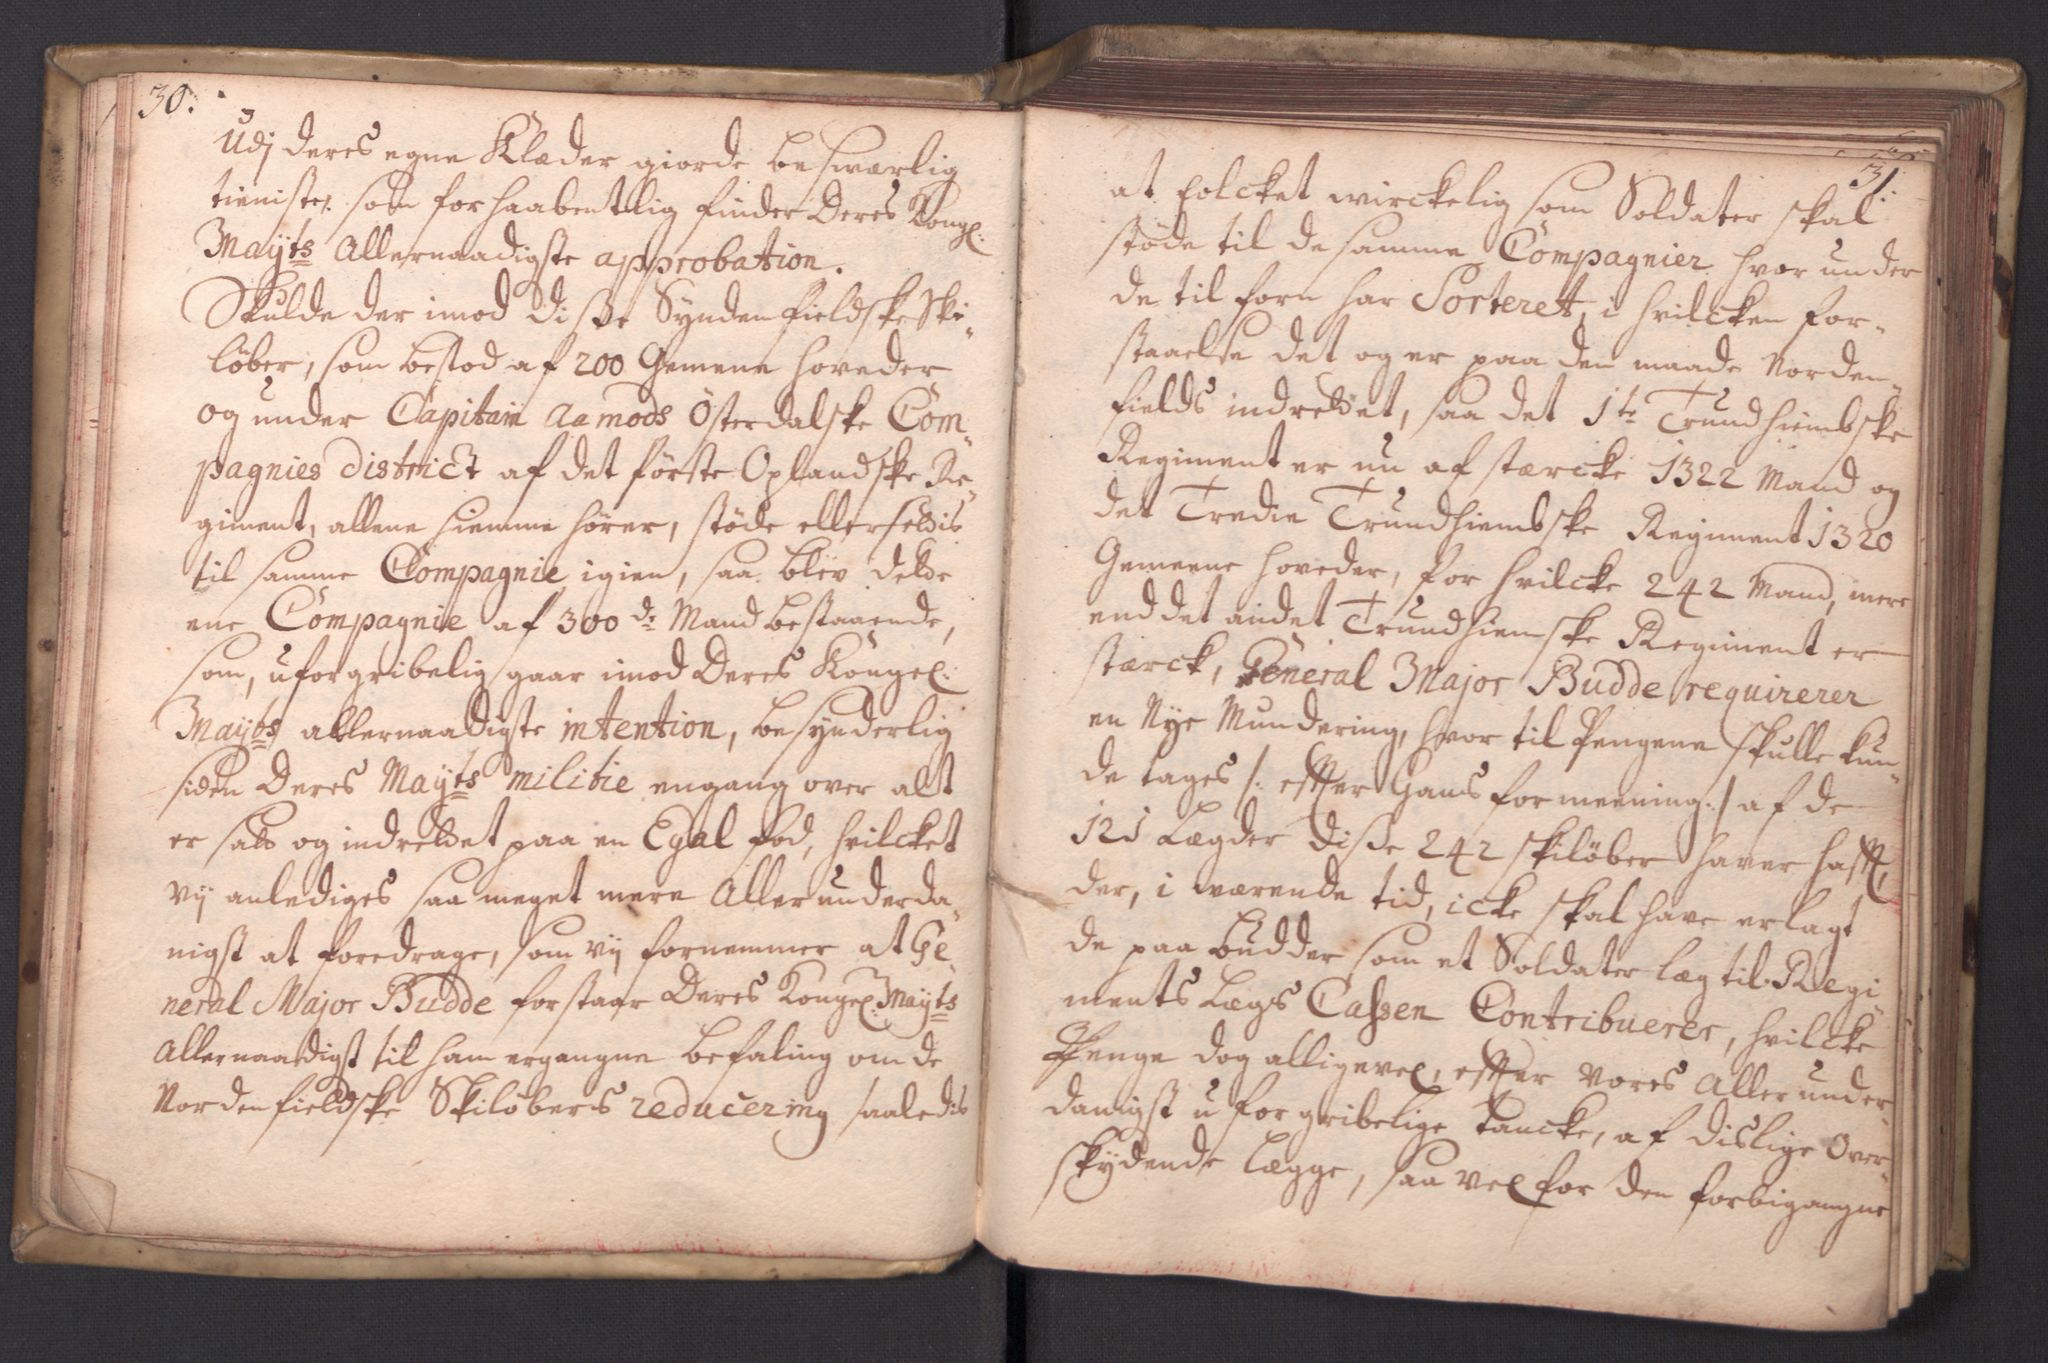 30.
Udj deres egne Klæder giorde beswærlig
tieniste, som forhaabentlig finder Deres Kongl:
Mayts Allernaadigste approbation.
Skulde der imod diße Syndenfieldske Ski-
löber, som bestod af 200 Gemene hoveder
og under Capitain Aamods Österdalske Com-
pagnies district af det förste Oplandske Re-
giment, allene hiemme hörer, stöde
til samme Compagnie igien, saa blev dette
ene Compagnie af 300de Mand bestaaende,
som, uforgribelig gaar imod Deres Kongel:
Mayts allernaadigste intention, besynderlig
siden Deres Mayts militie engang over alt
er satt og indrettet paa en Egal fod, hvilcket
vij anlediges saa meget mere Allerunderda-
nigst at foredrage, som vij fornemmer at Ge-
neral Major Budde forstaar Deres Kongel: Mayts
Allernaadigst til ham ergangne befaling om de
Nordenfieldske Skilöbers reducering saaledis
31.
at folcket wirckelig som Soldater skal
stöde til de samme Compagnier hvor under
de til forn har Sorteret, i hvilcken for-
staaelse det og er paa den maade Norden-
fields indrettet, saa det 1te Trundhiembske
Regiment er nu af stærcke 1322 Mand og
det Tredie Trundhiembske Regiment 1320
Gemeene hoveder, for hvilcke 242 Mand, mere
end det andet Trundhiemske Regiment er
stærck, General Major Budde requirerer
en Nye Mundering, hvor til Pengene skulle kun-
de tages /: efter Hans formeening :/ af de
121 Lægder diße 242 skilöber haver haft,
der, i værende tid, icke skal have erlagt
de paa budder som et Soldater læg til Regi-
ments Lægs Cassen Contribuerer, hvilcke
Penge dog alligevel, efter vores Allerunder-
danigst uforgribelige tancke, af dislige Over-
skydende lægge, saa vel for den forbigangne